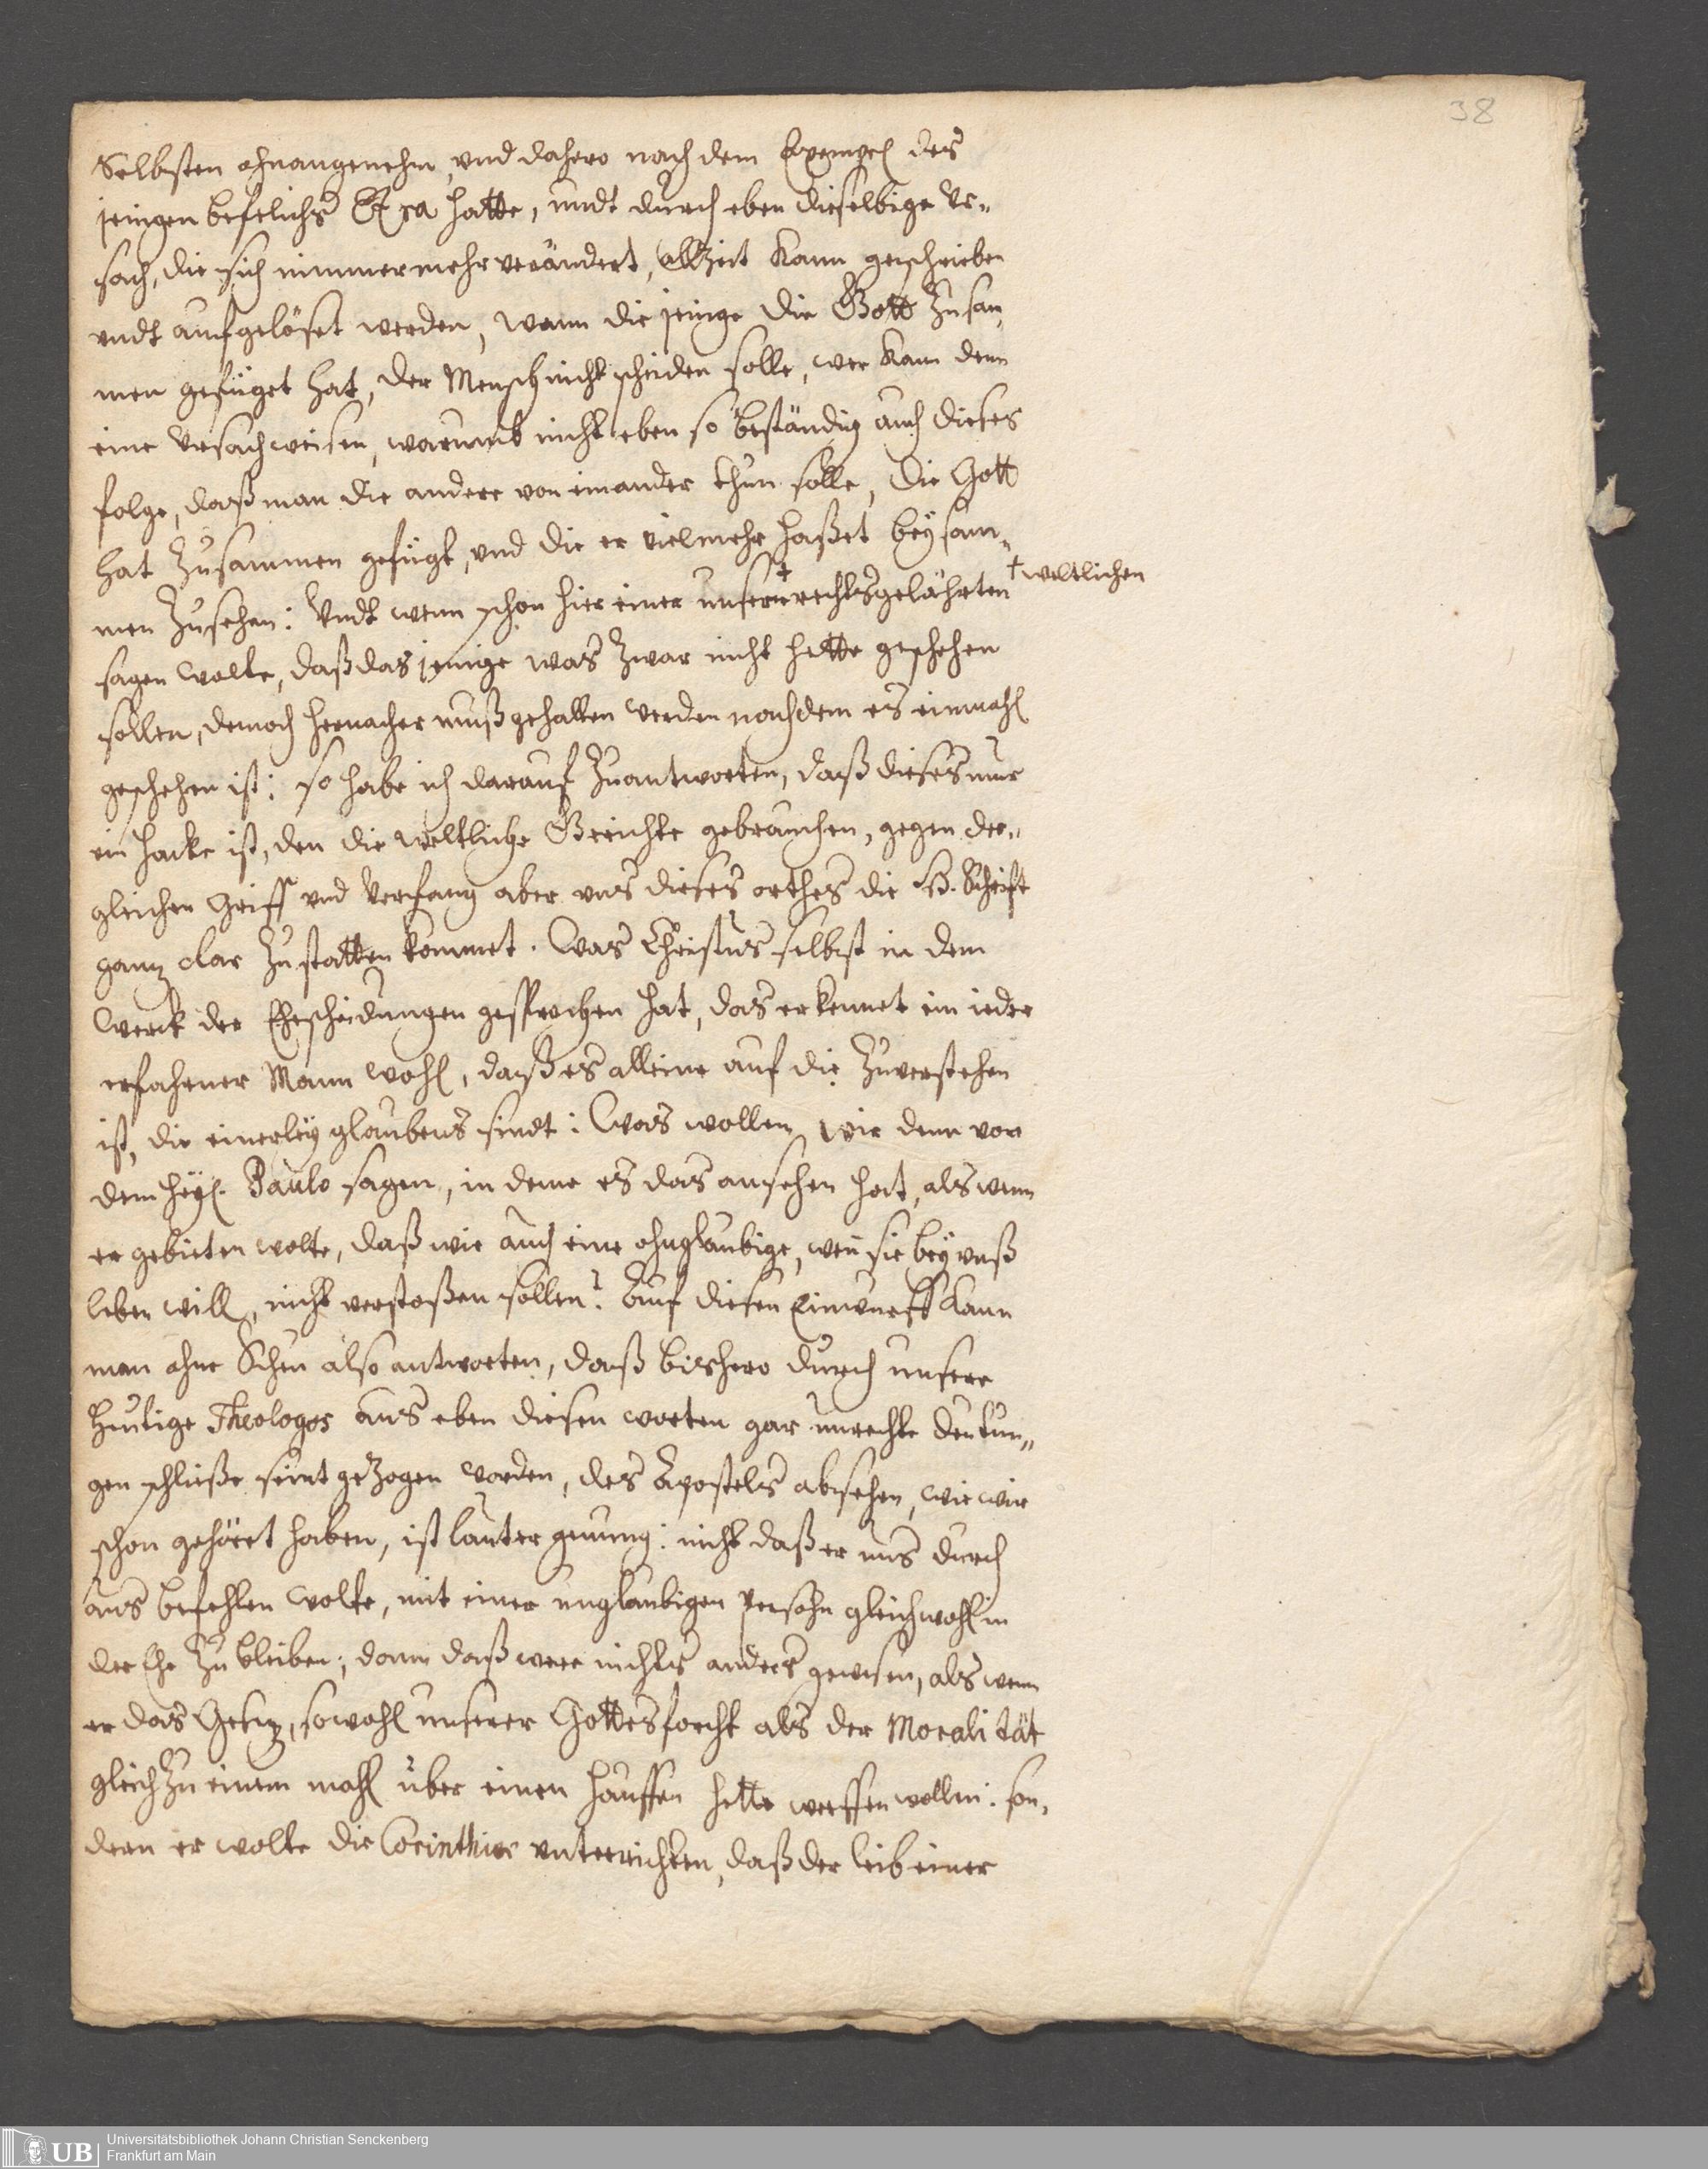 38
Selbsten ohnangenehm, vnd dahero nach dem Exempel des
jenigen befelichs Esra hatte, undt durch eben dieselbige Vr-
sach, die sich nimmermehr verändert, allzeit kann geschrieben
vndt aufgelöset werden, wann die jenige die Gott zusam
men gefüget hat, der Mensch nicht scheiden solle, wer kan denn
eine Vrsach weisen, warumb nicht eben so beständig auch dieses
folge, daß man die andere von einander thun solle, die Gott
hat zusammen gefügt, vnd die er vielmehr haßet beysam-
men zusehen: Vndt wenn schon hier einer unserer † rechtsgelährten † weltlichen
sagen wolte, daß das jenige was zwar nicht hette geschehen
sollen, dennoch hernacher muß gehalten werden nachdem es einmahl
geschehen ist: so habe ich darauf zu antworten, daß dieses nur
ein Hacke ist, den die weltliche Gerichte gebrauchen, gegen der-
gleichen Griff vnd Verfang aber vns dieses orthes die H. Schrift
gantz clar zu statten kommet. Was Christus selbst in dem
Werck der Ehescheidungen gesprochen hat, das erkennet ein ieder
erfahrner Mann wohl, daß es alleine auf die zuverstehen
ist, die einerley glaubens sindt: Was wollen wir denn von
dem Heyl. Paulo sagen, in deme es das ansehen hat, als wenn
er gebieten wolte, daß wir auch eine ohnglaubige, wen sie bey vnß
leben will, nicht verstoßen sollen? Auf diesen Einwurff kann
man ohne Scheu also antworten, daß bishero durch unsere
heutige Theologos aus eben diesen worten gar unrechte deutun-
gen schlüße seint gezogen worden, des Apostels absehen, wie wir
schon gehöret haben, ist lauter genung: nicht daß er uns durch
aus befehlen wolte, mit einer unglaubigen persohn gleichwohl in
der Ehe zu bleiben; dann daß were nichts anders gewesen, als wenn
er das Gesetz, sowohl unserer Gottesforcht als der Moralität
gleich zu einem mahl über einen hauffen hette werffen wollen: son-
dern er wolte die Corinthier vnterrichten, daß der leib einer
UB Universitätsbibliothek Johann Christian Senckenberg
Frankfurt am Main